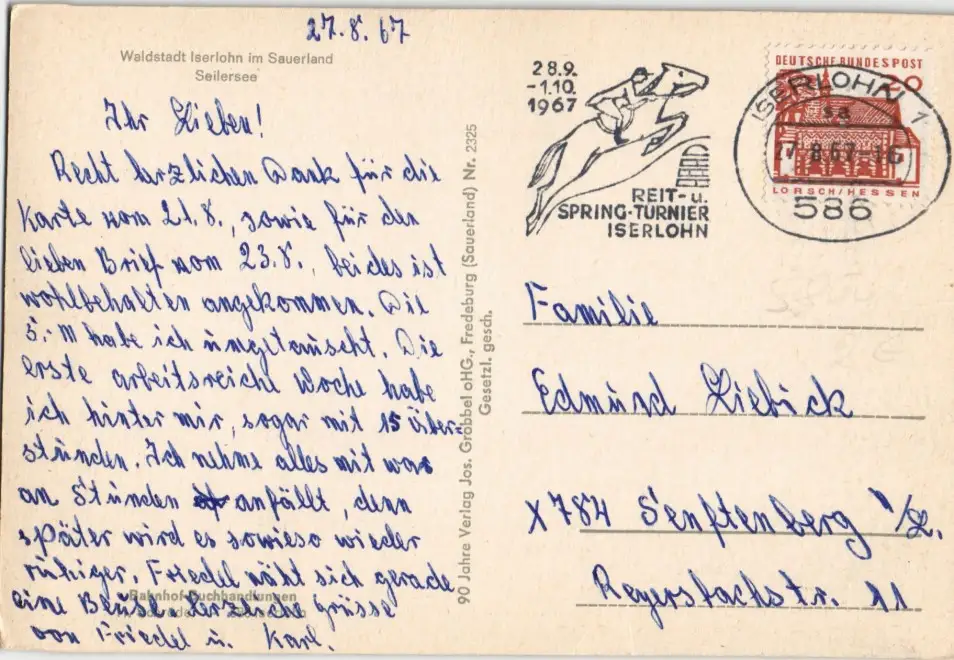 27.8.67
Waldstadt Iserlohn im Sauerland
Seilersee
Ihr Lieben!
Recht herzlichen Dank für die
Karte vom 21.8., sowie für den
lieben Brief vom 23.8., beides ist
wohlbehalten angekommen. Die
5.-M habe ich umgetauscht. Die
erste arbeitsreiche Woche habe
ich hinter mir, sogar mit 15 Über=
stunden. Ich nehme alles mit was
an Stunden anfällt, denn
später wird es sowieso wieder
ruhiger. Friedel näht sich gerade
eine Bluse. Herzliche Grüsse
von Friedel u. Karl.
Bahnhof-Buchhandlungen
90 Jahre Verlag Jos. Grobbel oHG., Fredeburg (Sauerland) Nr. 2325
Gesetzl. gesch.
28.9.
-1.10.
1967
REIT- u.
SPRING-TURNIER
ISERLOHN
DEUTSCHE BUNDESPOST
LORSCH/HESSEN
ISERLOHN 1
sa
27.8.67-16
586
Familie
Edmund Liebick
X 784 Senftenberg N/L.
Reyersbachstr. 11